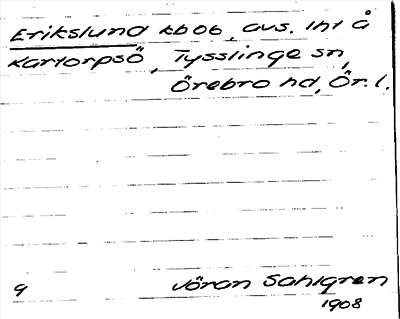 Erikslund tbob, avs. lht å
Kartorpsö, Tysslinge sn,
Örebro hd, Ör. l.
9 Jöran Sahlgren
1908